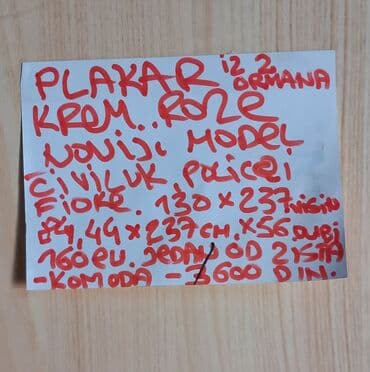 PLAKAR iz 2 ORMANA
KREM.. ROZE
NOVIJI MODEL
ČIVILUK, POLICE i
FIOKE. 130 x 237 VISIN
84, 49 x 237 CM. x 56 DUBJ
160 eu. JEDAN OD 2 ISTA
- KOMODA - 3600 DIN.